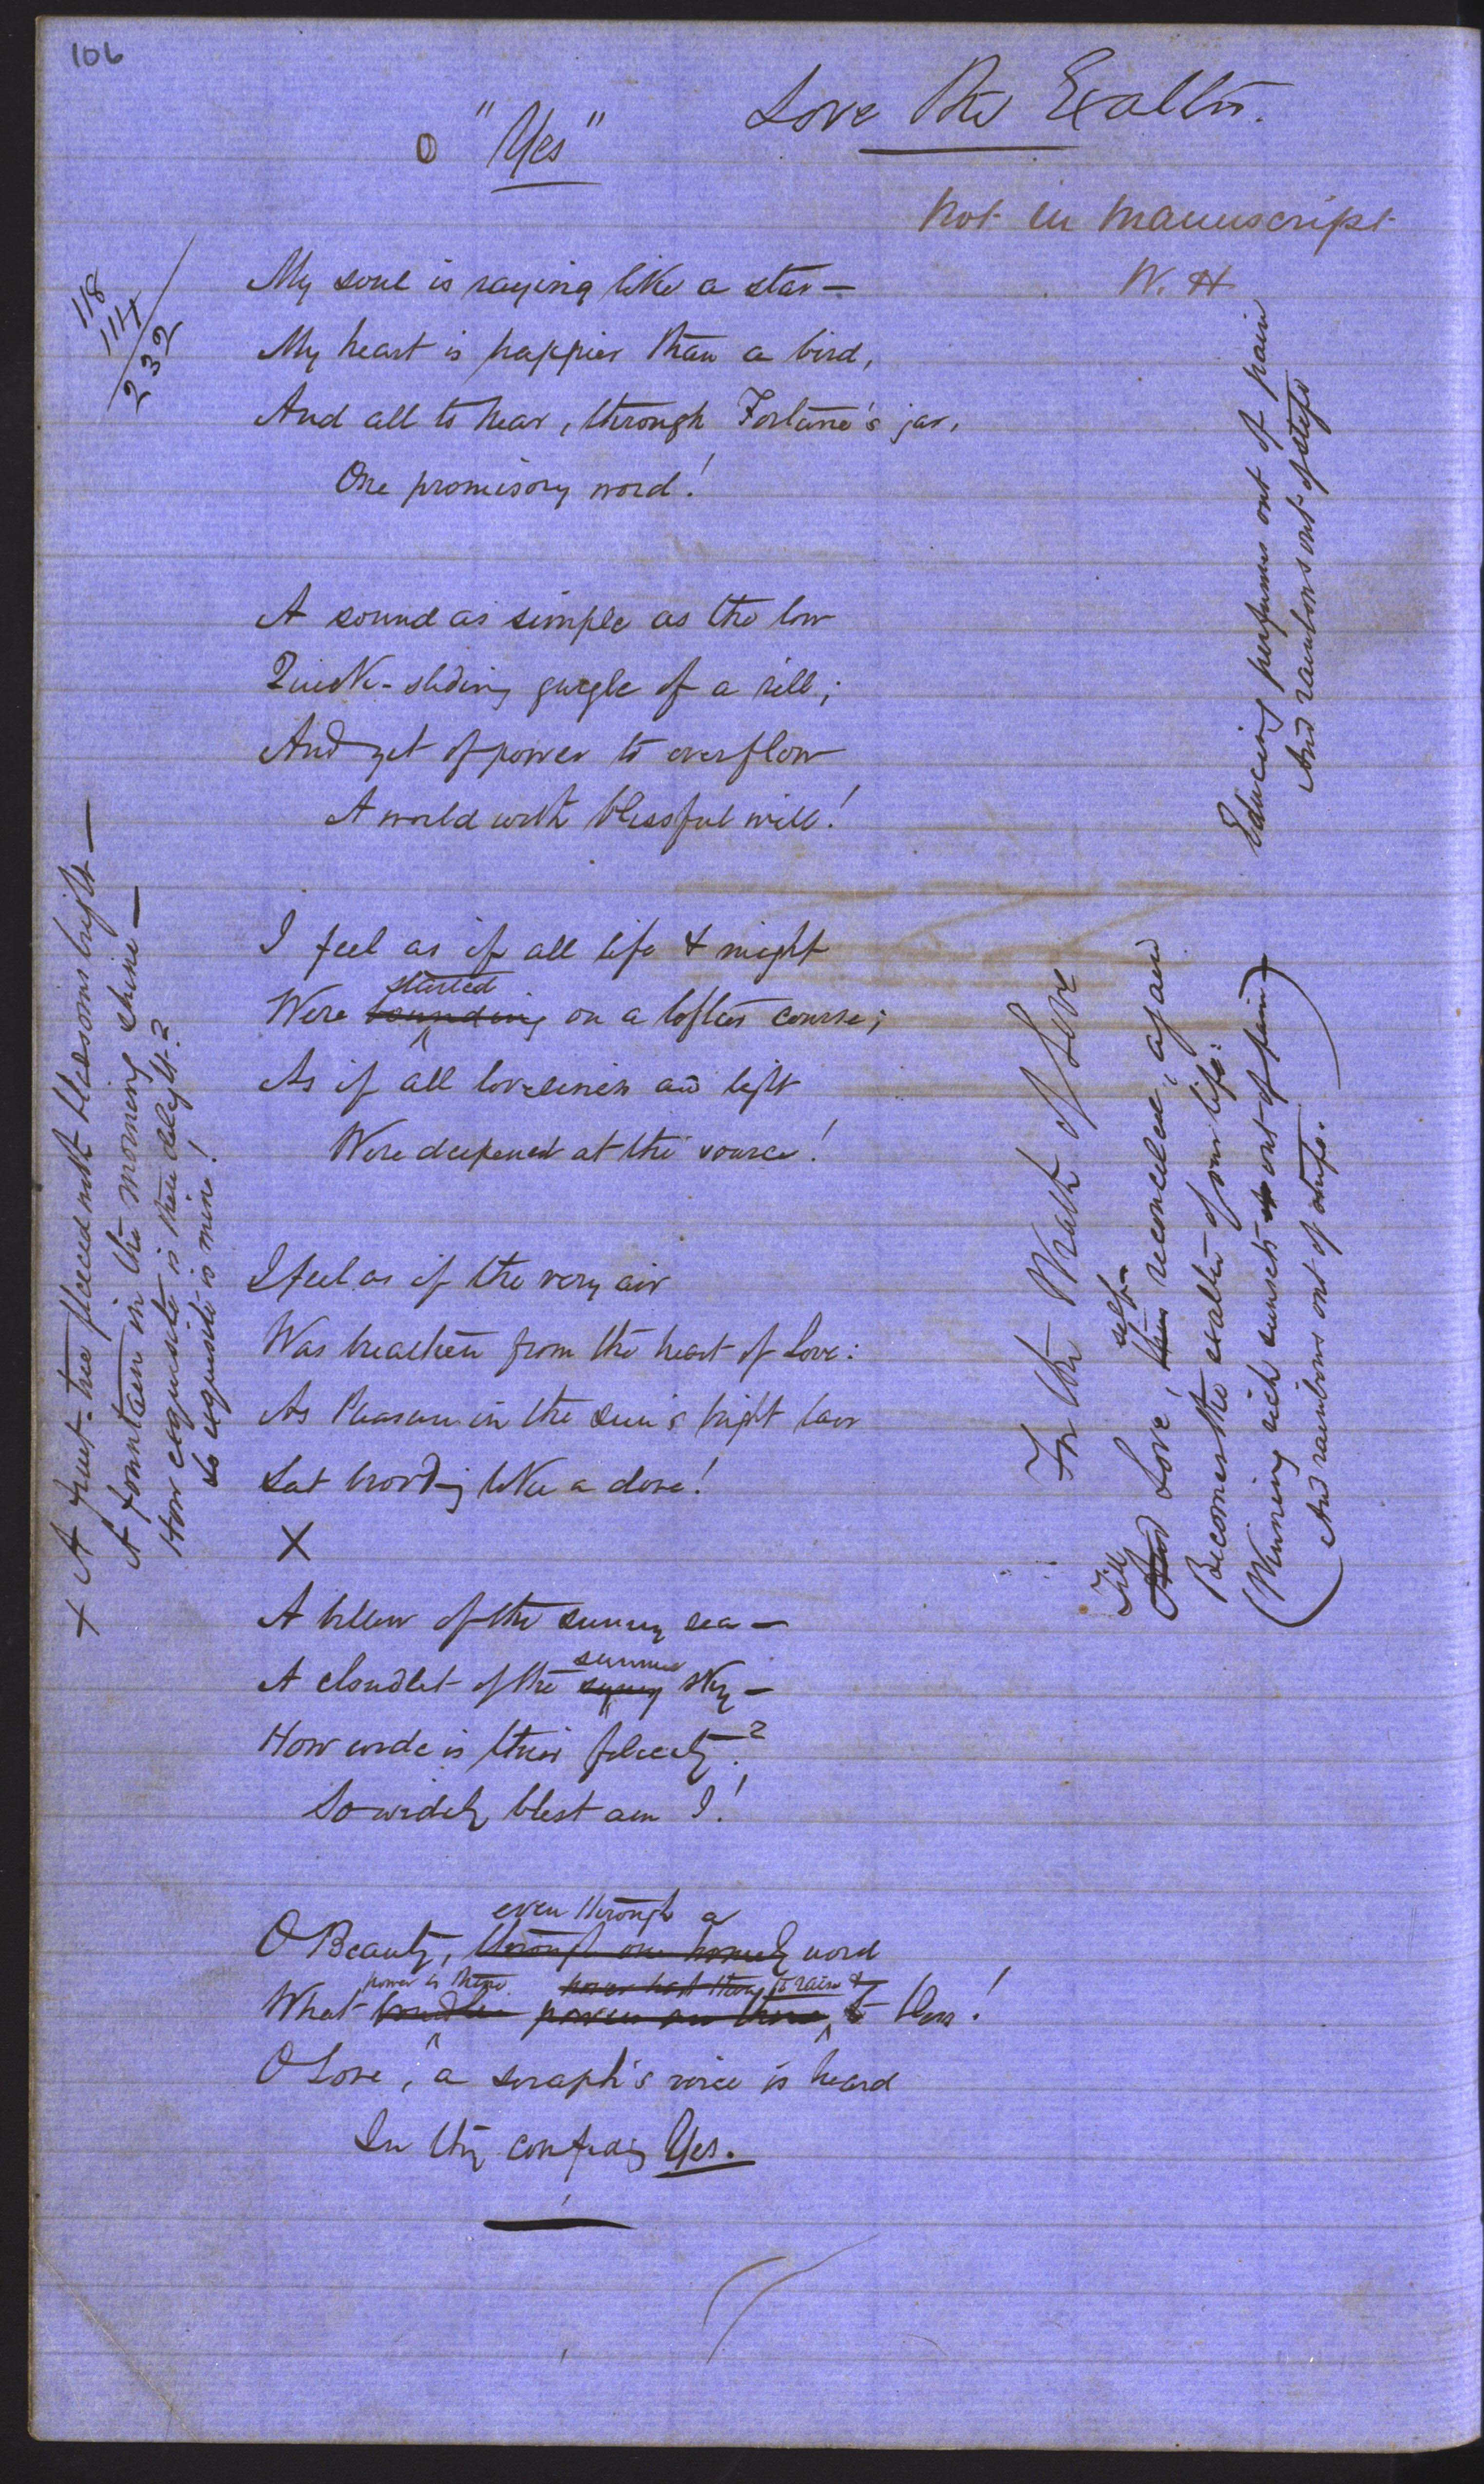 106
"Yes"
Love The Exalter.
Not in Manuscript
W. H
118
114
232
My soul is raying like a star —
My heart is happier than a bird,
And all to hear, through Fortune's jar,
One promisory word!
A sound as simple as the low
Quick-sliding gurgle of a rill;
And yet of power to overflow
A world with blissful will!
I feel as if all life & might
started
Were bounding on a loftier course;
As if all loveliness and light
Were deepened at the source!
I feel as if the very air
Was breathen from the heart of Love:
As Pleasure in the sun's bright lair
Sat brooding like a dove!
X
A billow of the sunny sea —
summer
A cloudlet of the sky —
How wide is their felicity?
So widely blest am I!
even through a
O Beauty, through one homely word
power is thine power hast thou to raise &
What power to bless!
O Love, a seraph's voice is heard
In thy confiding Yes.
+ A fruit-tree fleeced with blossoms bright —
A fountain in the morning shine —
How exquisite is their delight?
So exquisite is mine!
For the Wrath of Love
Till self-
And Love, thus reconciled, again
Becomes the exalter of our life:
(Winning rich sunsets out of pain —
And rainbows out of strife.)
Educing perfumes out of pain
And rainbows out of strife